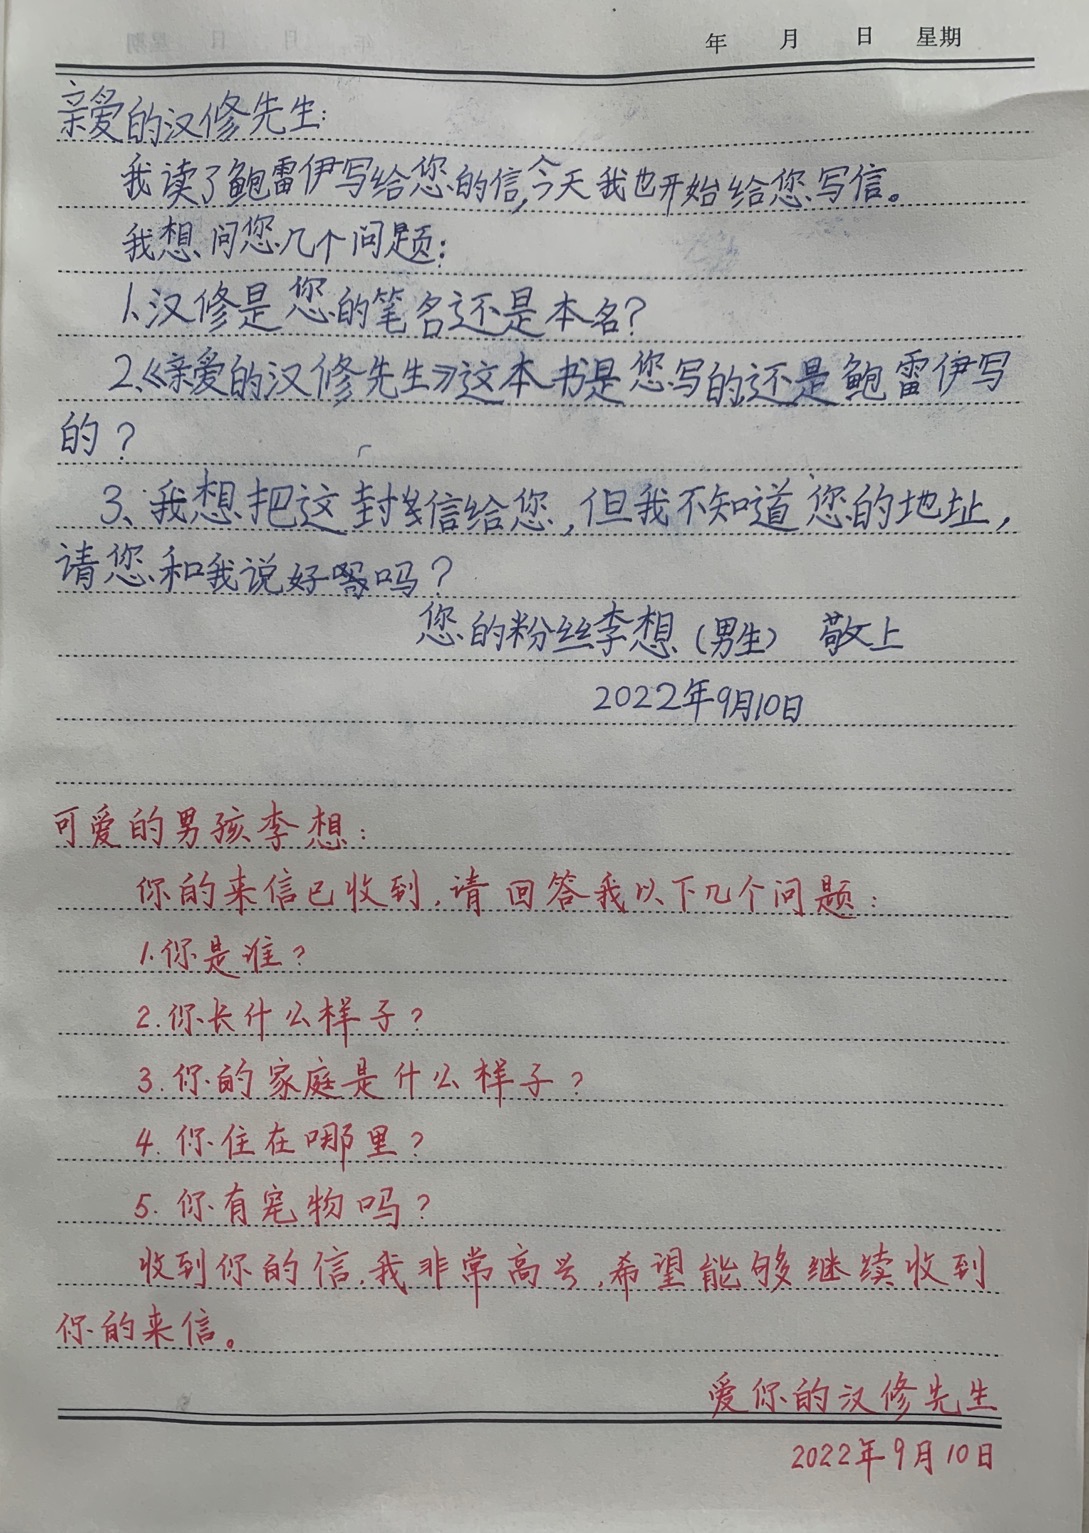 年 月 日 星期
亲爱的汉修先生:
我读了鲍雷伊写给您的信,今天我也开始给您写信。
我想问您几个问题:
1、汉修是您的笔名还是本名?
2、《亲爱的汉修先生》这本书是您写的还是鲍雷伊写
的?
3、我想把这封信给您,但我不知道您的地址,
请您和我说好吗?
您的粉丝李想(男生) 敬上
2022年9月10日
可爱的男孩李想:
你的来信已收到,请回答我以下几个问题:
1.你是谁?
2.你长什么样子?
3.你的家庭是什么样子?
4.你住在哪里?
5.你有宠物吗?
收到你的信,我非常高兴,希望能够继续收到
你的来信。
爱你的汉修先生
2022年9月10日